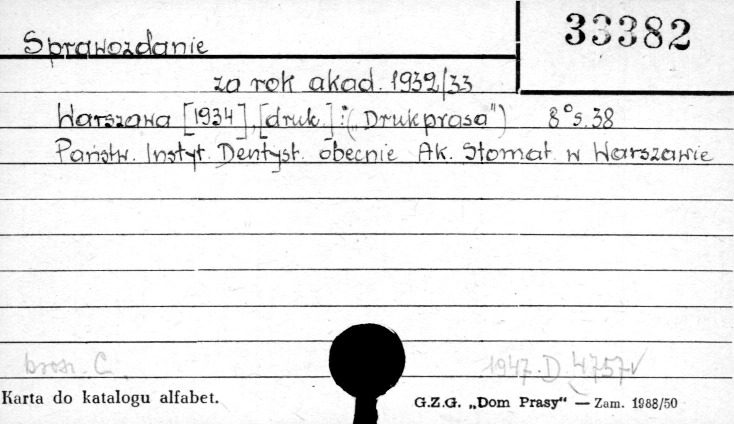 33382
Sprawozdanie
za rok akad. 1932/33
Warszawa [1934], [druk.]: („Drukprasa") 8° s. 38
Państw. Instyt. Dentyst. obecnie Ak. Stomat. w Warszawie
brosz. C. 1947. D. 4757
Karta do katalogu alfabet. G.Z.G. „Dom Prasy" — Zam. 1988/50